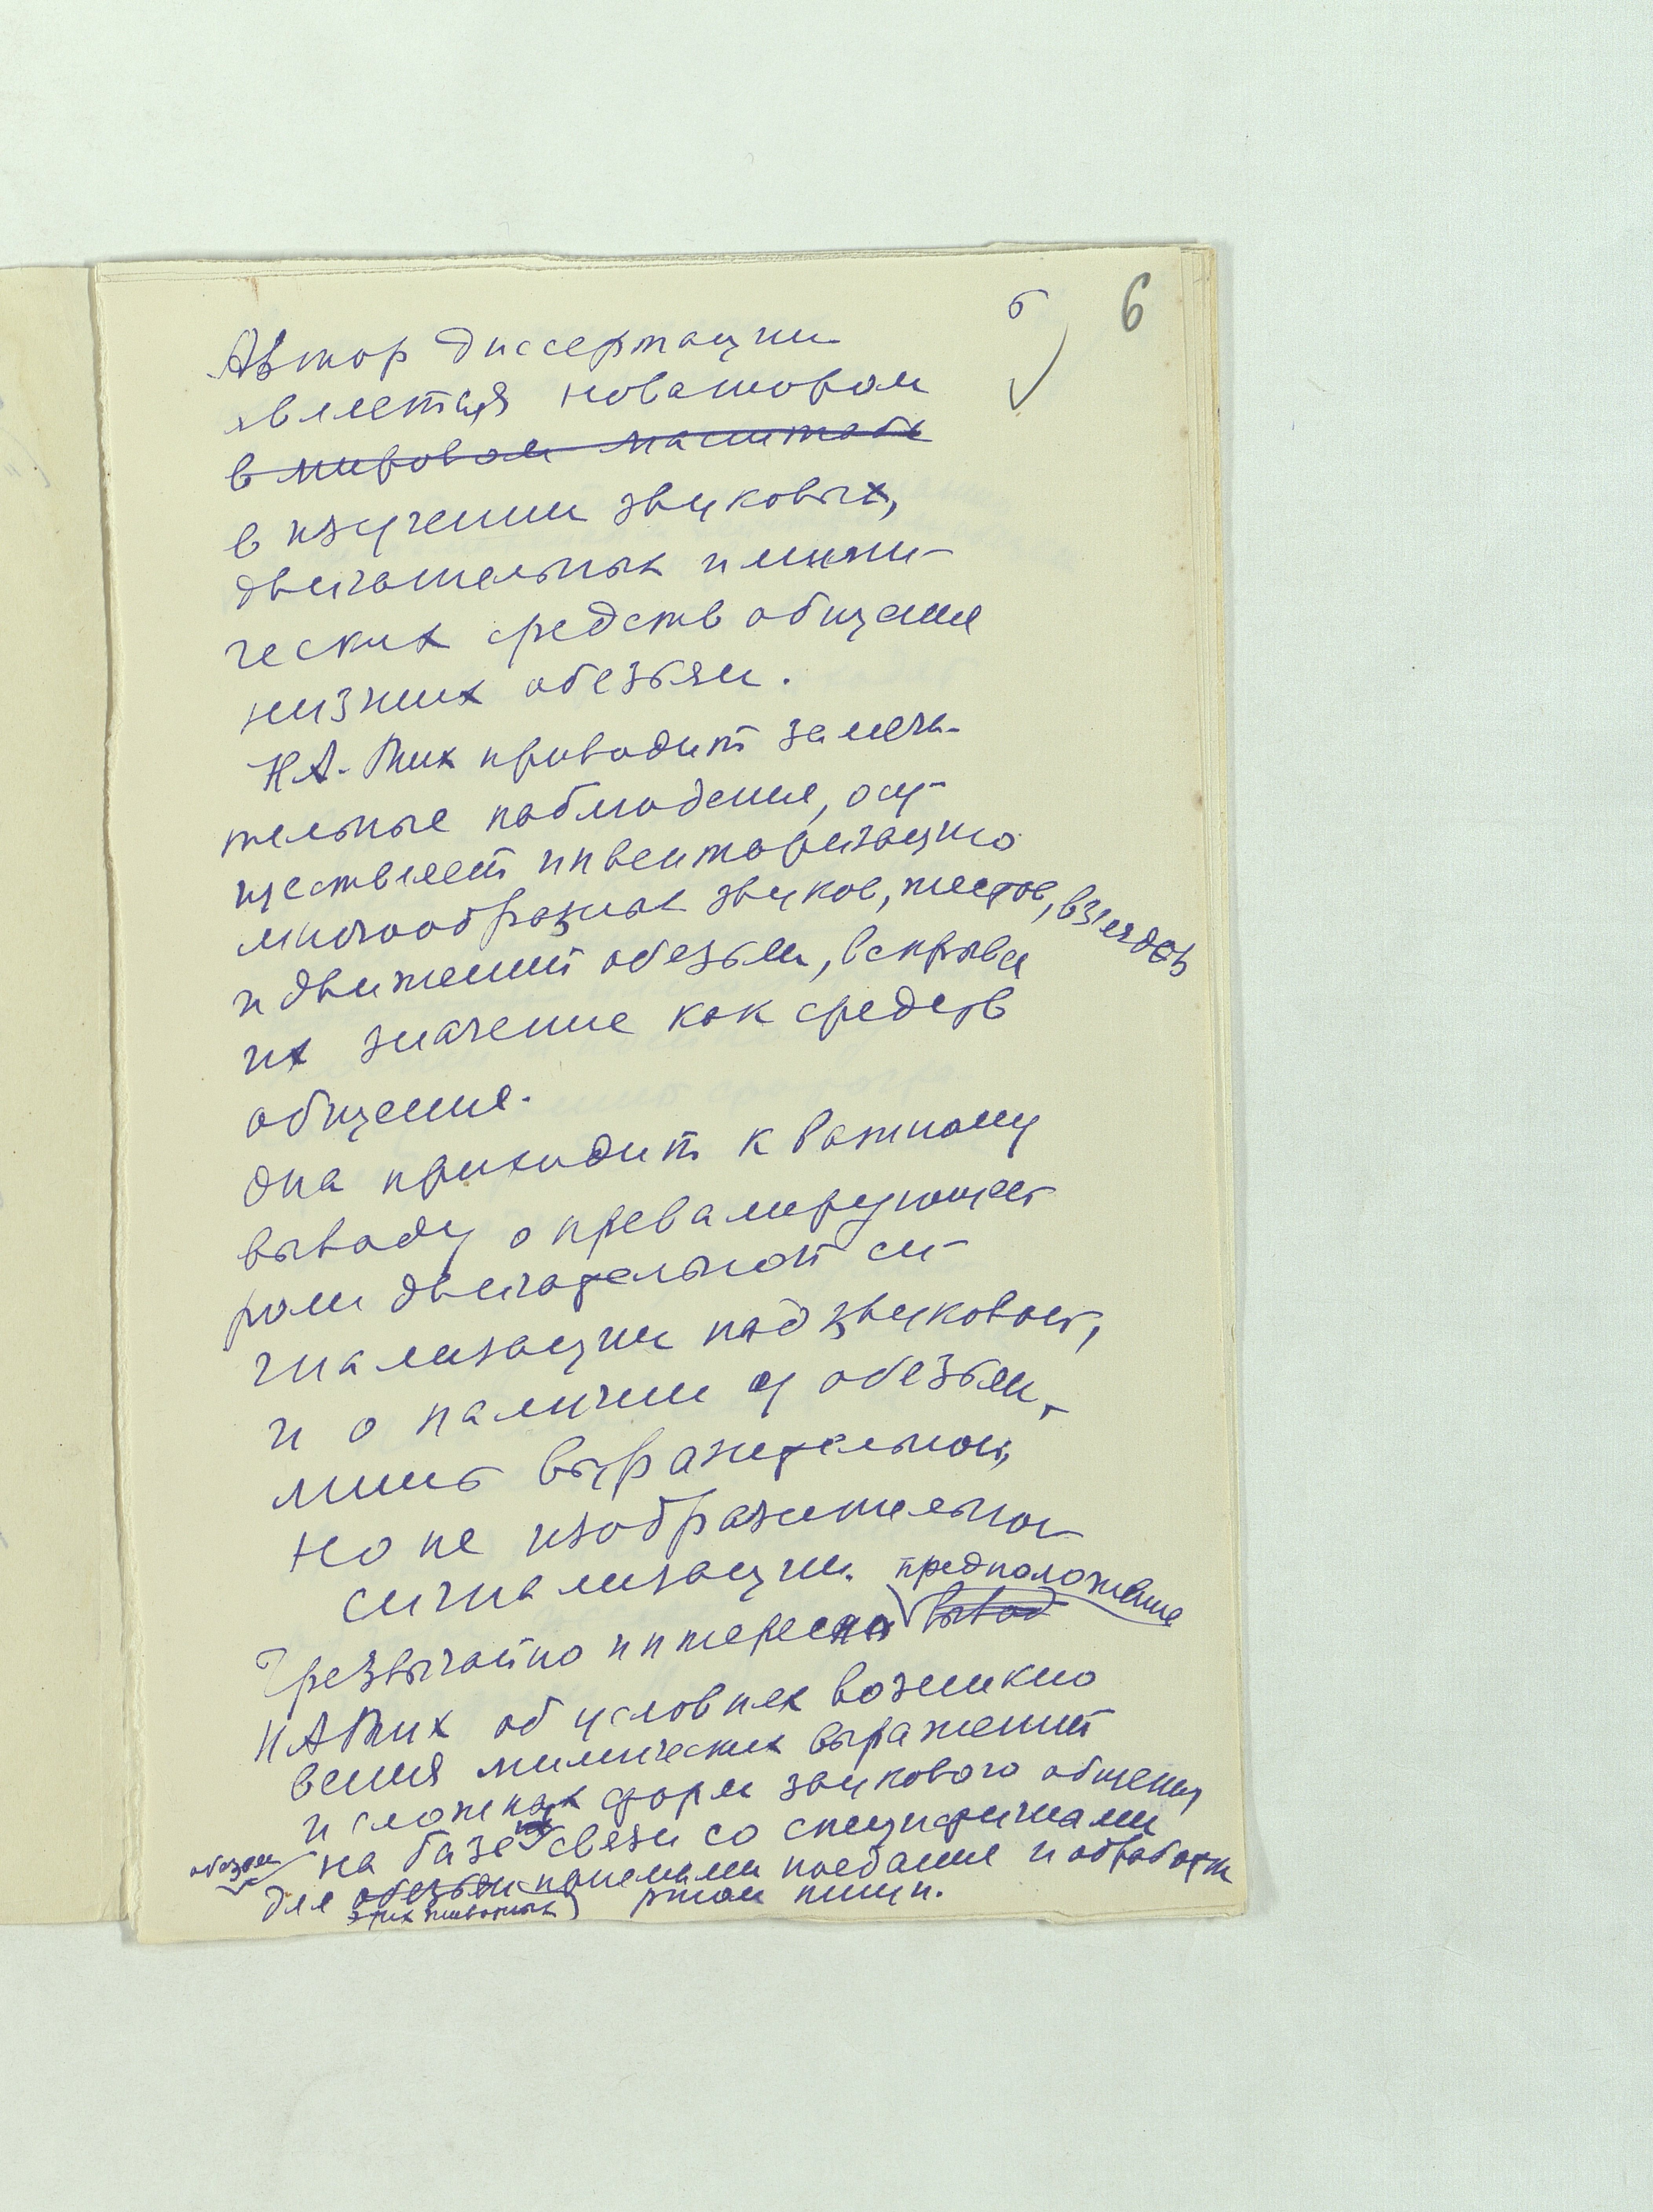 б 6
Автор диссертации
является новатором
в мировом масштабе
в изучении звуковых,
двигательных и мими-
ческих средств общения
низших обезьян.
Н.А. Тих проводит замеча-
тельные наблюдения, осу-
ществляет инвентаризацию
многообразных звуков, жестов, взглядов
и движений обезьян, вскрывая
их значение как средств
общения.
Она приходит к важному
выводу о превалирующей
роли двигательной си-
гнализации над звуковой,
и о наличии у обезьян,
лишь выразительной,
но не изобразительной
сигнализации. предположение
Чрезвычайно интересно вывод
Н А Тих об условиях возникно
вения мимических выражений
и сложных форм звукового общения
на базе связи со специфичными
обезьян
для обезьян приемами поедания и обработки
этих животных ртом пищи.